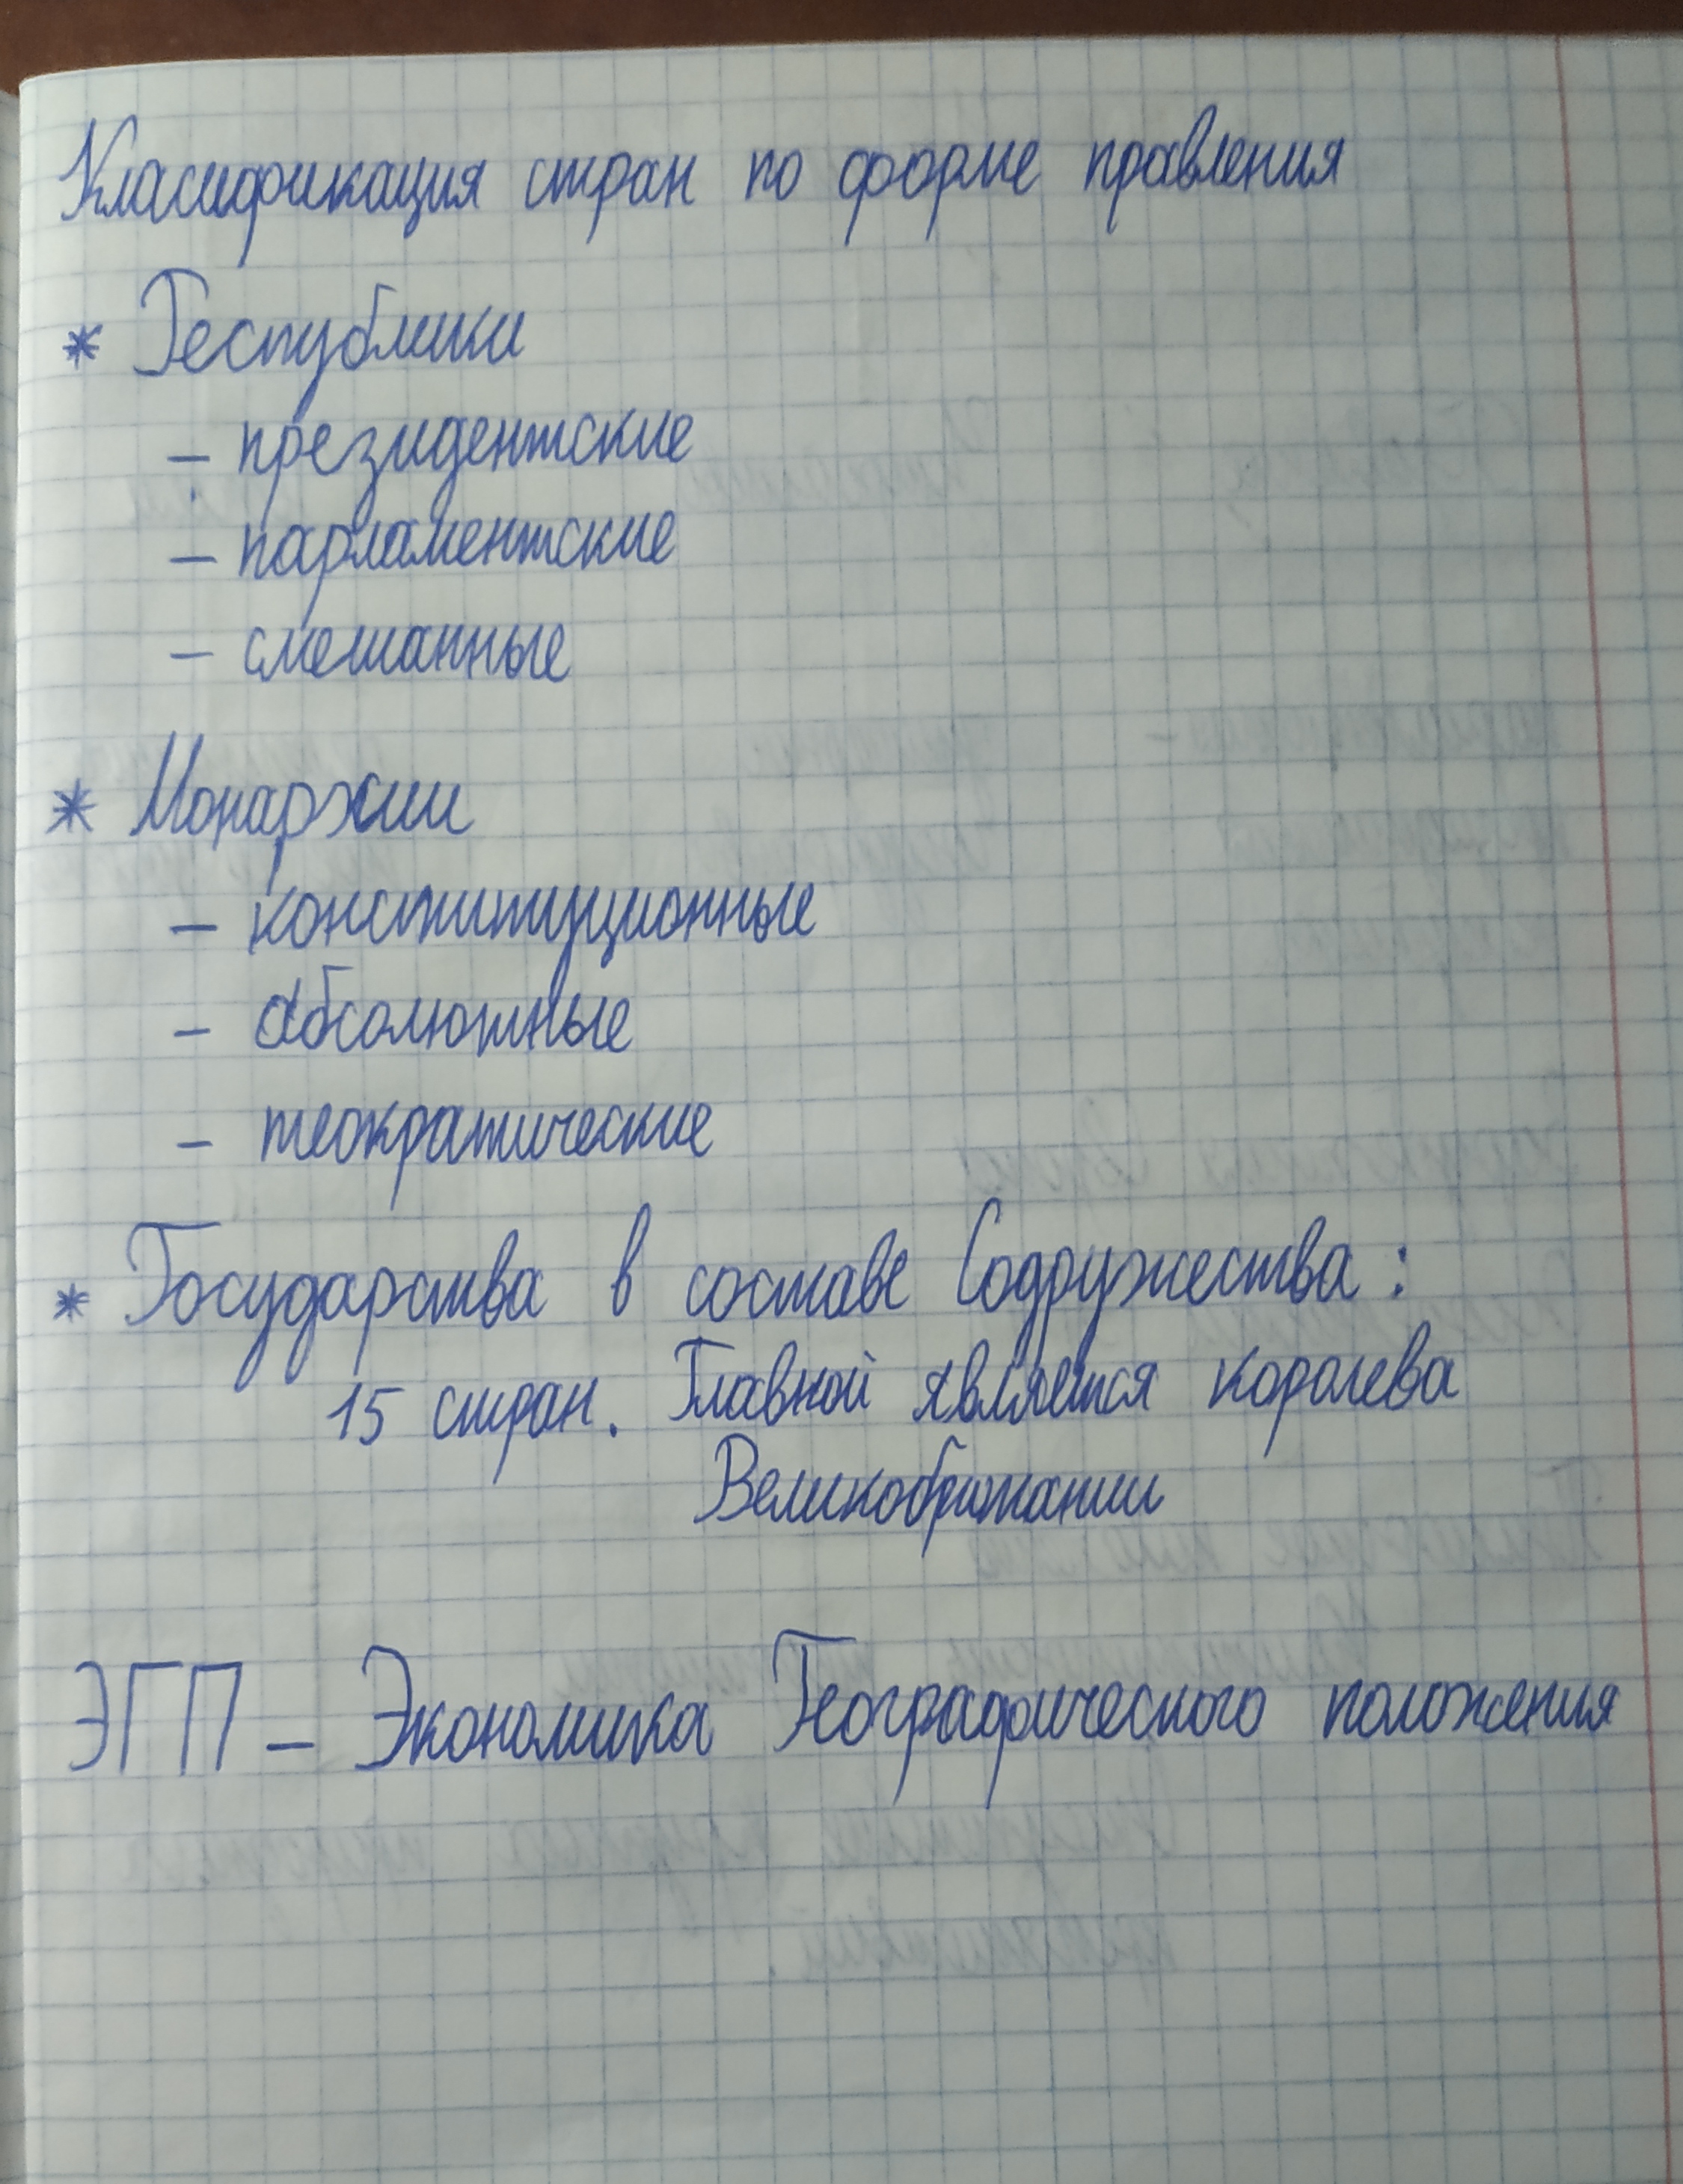 Класификация стран по форме правления
* Республики
- президентские
- парламентские
- смешанные
* Монархии
- конституционные
- абсолютные
- теократические
* Государства в составе Содружества:
15 стран. Главной является королева
Великобритании
ЭГП - Экономика Географического положения